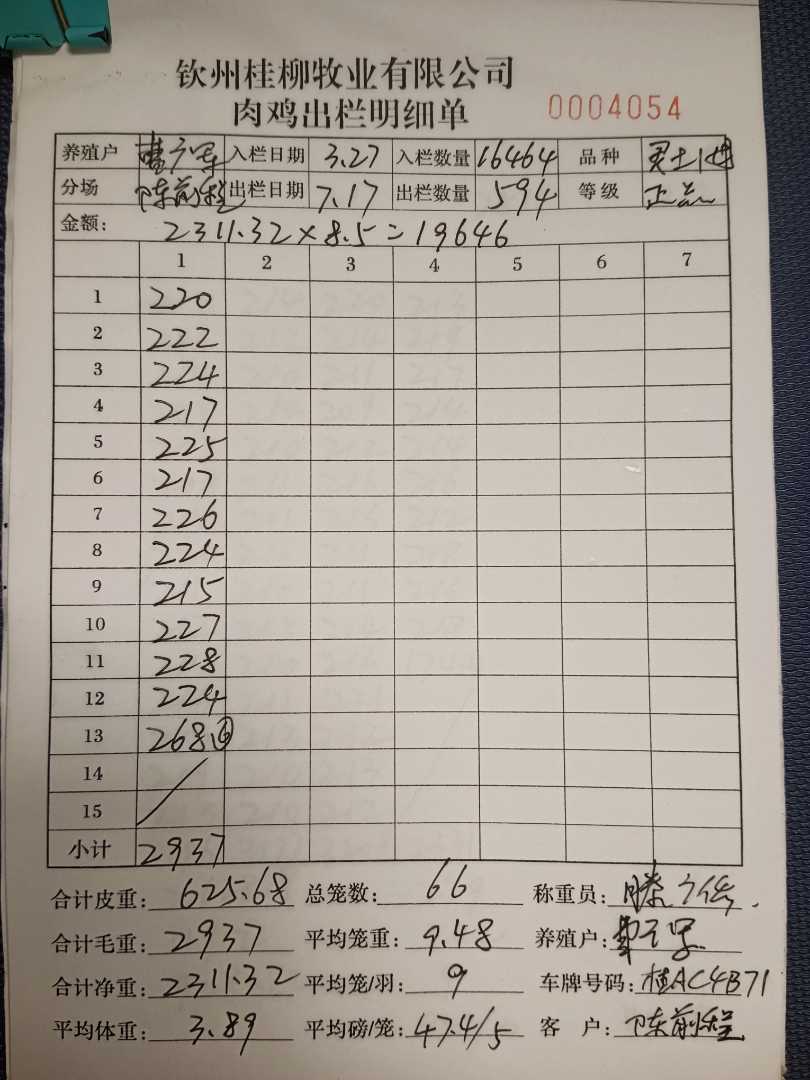 钦州桂柳牧业有限公司
肉鸡出栏明细单 0004054
养殖户 入栏日期 3.27 入栏数量 16464 品种
分场 陈前程 出栏日期 7.17 出栏数量 594 等级 正品
金额: 2311.32×8.5=19646
1 2 3 4 5 6 7
1 220
2 222
3 224
4 217
5 225
6 217
7 226
8 224
9 215
10 227
11 228
12 224
13 268
14
15
小计 2937
合计皮重: 625.68 总笼数: 66 称重员:
合计毛重: 2937 平均笼重: 9.48 养殖户:
合计净重: 2311.32 平均笼/羽: 9 车牌号码: 桂AC4B71
平均体重: 3.89 平均磅/笼: 47.4/5 客 户: 陈前程